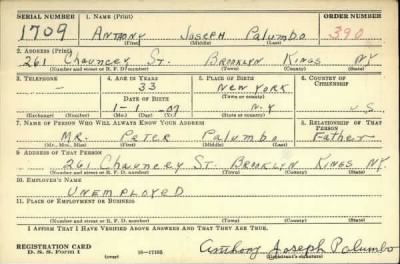 SERIAL NUMBER 1. NAME (Print) ORDER NUMBER
1709 ANTHONY JOSEPH PALUMBO 390
(First) (Middle) (Last)
2. ADDRESS (Print)
261 Chauncey St. Brooklyn Kings NY
(Number and street or R. F. D. number) (Town) (County) (State)
3. TELEPHONE 4. AGE IN YEARS 5. PLACE OF BIRTH 6. COUNTRY OF CITIZENSHIP
— 33 NEW YORK
DATE OF BIRTH (Town or county)
1-1-07 N.Y. U.S.
(Exchange) (Number) (Mo.) (Day) (Yr.) (State or country)
7. NAME OF PERSON WHO WILL ALWAYS KNOW YOUR ADDRESS 8. RELATIONSHIP OF THAT PERSON
MR. Peter Palumbo Father
(Mr., Mrs., Miss) (First) (Middle) (Last)
9. ADDRESS OF THAT PERSON
261 Chauncey St. Brooklyn Kings NY.
(Number and street or R. F. D. number) (Town) (County) (State)
10. EMPLOYER'S NAME
UNEMPLOYED
11. PLACE OF EMPLOYMENT OR BUSINESS
(Number and street or R. F. D. number) (Town) (County) (State)
I AFFIRM THAT I HAVE VERIFIED ABOVE ANSWERS AND THAT THEY ARE TRUE.
REGISTRATION CARD
D. S. S. Form 1 (over) Anthony Joseph Palumbo
(Registrant's signature)